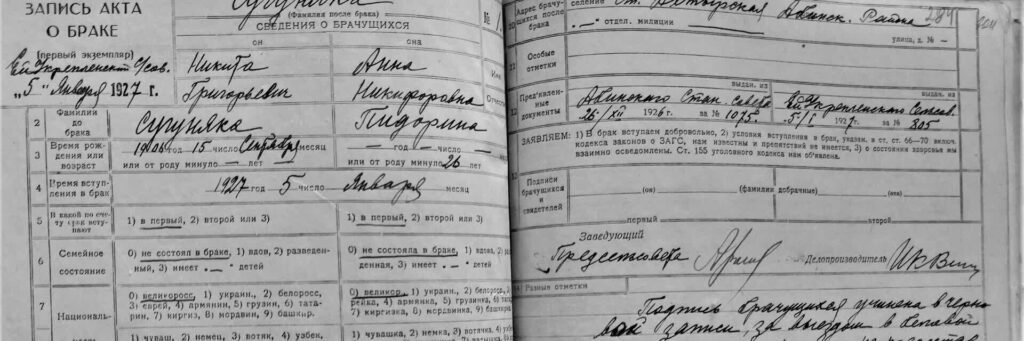 ЗАПИСЬ АКТА
О БРАКЕ
(первый экземпляр)
"5" Января 1927 г.
(Фамилия после брака)
СВЕДЕНИЯ О БРАЧУЩИХСЯ
он она
Никита Анна
Григорьевич Никифоровна
2 Фамилии до брака Сугуняка Пидорина
3 Время рождения или возраст 1906 год 15 число Сентября месяц — год — число — месяц
или от роду минуло — лет или от роду минуло 26 лет
4 Время вступления в брак 1927 год 5 число Января месяц
5 В какой по счету брак вступают 1) в первый, 2) второй или 3) 1) в первый, 2) второй или 3)
6 Семейное состояние 0) не состоял в браке, 1) вдов, 2) разведенный, 3) имеет — детей 0) не состояла в браке, 1) вдова, 2) разведенная, 3) имеет — детей
7 Националь-
0) великоросс, 1) украин., 2) белоросс,
3) еврей, 4) армянин, 5) грузин, 6) татарин, 7) киргиз, 8) мордвин, 9) башкир.
0) великор., 1) украин., 2) белорос., 3) еврейка, 4) армянка, 5) грузинка, 6) татарка, 7) киргизка, 8) мордвинка, 9) башкир.
1) чуваш, 2) немец, 3) вотяк, 4) узбек, 1) чувашка, 2) немка, 3) вотячка, 4) узбек
Адрес брачущихся после брака
отдел. милиции
Абинск. Района
улица, д. № —
Особые отметки
Пред'явленные документы
выдан. из выдан. из
Абинского Стан. совета
25/XII 1926 г. за № 1075 5/I 1927 г. за № 805
ЗАЯВЛЯЕМ: 1) В брак вступаем добровольно, 2) условия вступления в брак, указан. в ст. ст. 66—70 включ.
кодекса законов о ЗАГС, нам известны и препятствий не имеется, 3) о состоянии здоровья мы
взаимно осведомлены. Ст. 155 уголовного кодекса нам об'явлена.
Подписи брачущихся и свидетелей
(он) (фамилии добрачные) (она)
первый второй
Заведующий
Делопроизводитель
14 Разные отметки
Подпись брачущихся учинена в черно
вой записи, за выездом в